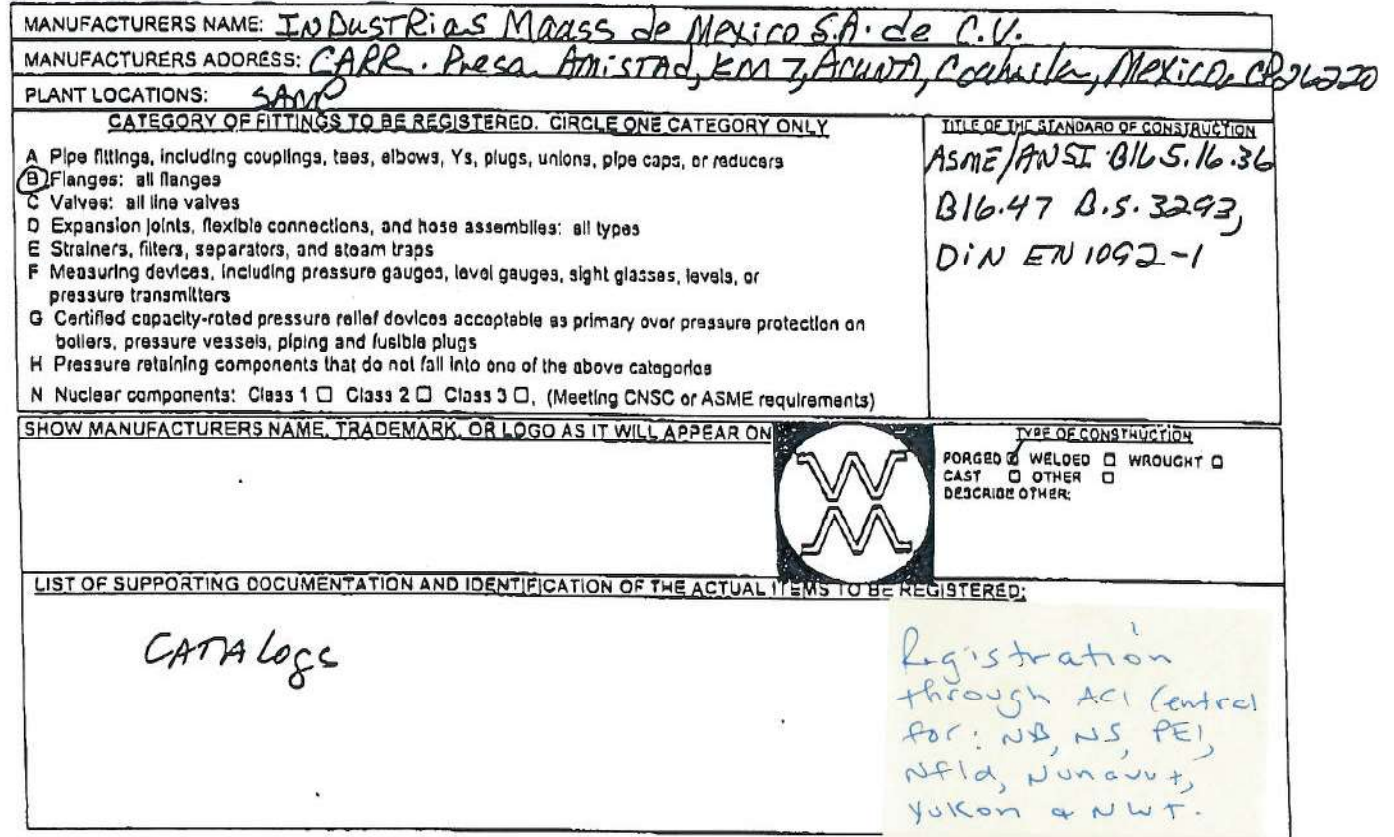 MANUFACTURERS NAME: INDusTRias Maass de Mexico S.A. de C.V.
MANUFACTURERS ADDRESS: CARR. Presa AmiSTAd, KM 7, ACUÑA, Coahuila, Mexico, CP26220
PLANT LOCATIONS: SAME
CATEGORY OF FITTINGS TO BE REGISTERED. CIRCLE ONE CATEGORY ONLY
A Pipe fittings, including couplings, tees, elbows, Ys, plugs, unions, pipe caps, or reducers
B Flanges: all flanges
C Valves: all line valves
D Expansion joints, flexible connections, and hose assemblies: all types
E Strainers, filters, separators, and steam traps
F Measuring devices, including pressure gauges, level gauges, sight glasses, levels, or
pressure transmitters
G Certified capacity-rated pressure relief devices acceptable as primary over pressure protection on
boilers, pressure vessels, piping and fusible plugs
H Pressure retaining components that do not fall into one of the above categories
N Nuclear components: Class 1 ☐ Class 2 ☐ Class 3 ☐, (Meeting CNSC or ASME requirements)
TITLE OF THE STANDARD OF CONSTRUCTION
ASME/ANSI B16 5.16.36
B16.47 B.S. 3293,
DiN EN 1092-1
SHOW MANUFACTURERS NAME, TRADEMARK, OR LOGO AS IT WILL APPEAR ON
TYPE OF CONSTRUCTION
FORGED ☑ WELDED ☐ WROUGHT ☐
CAST ☐ OTHER ☐
DESCRIBE OTHER:
LIST OF SUPPORTING DOCUMENTATION AND IDENTIFICATION OF THE ACTUAL ITEMS TO BE REGISTERED:
CATALogs
Registration
through ACI Central
for: NB, NS, PEI,
Nfld, Nunavut,
Yukon & NWT.